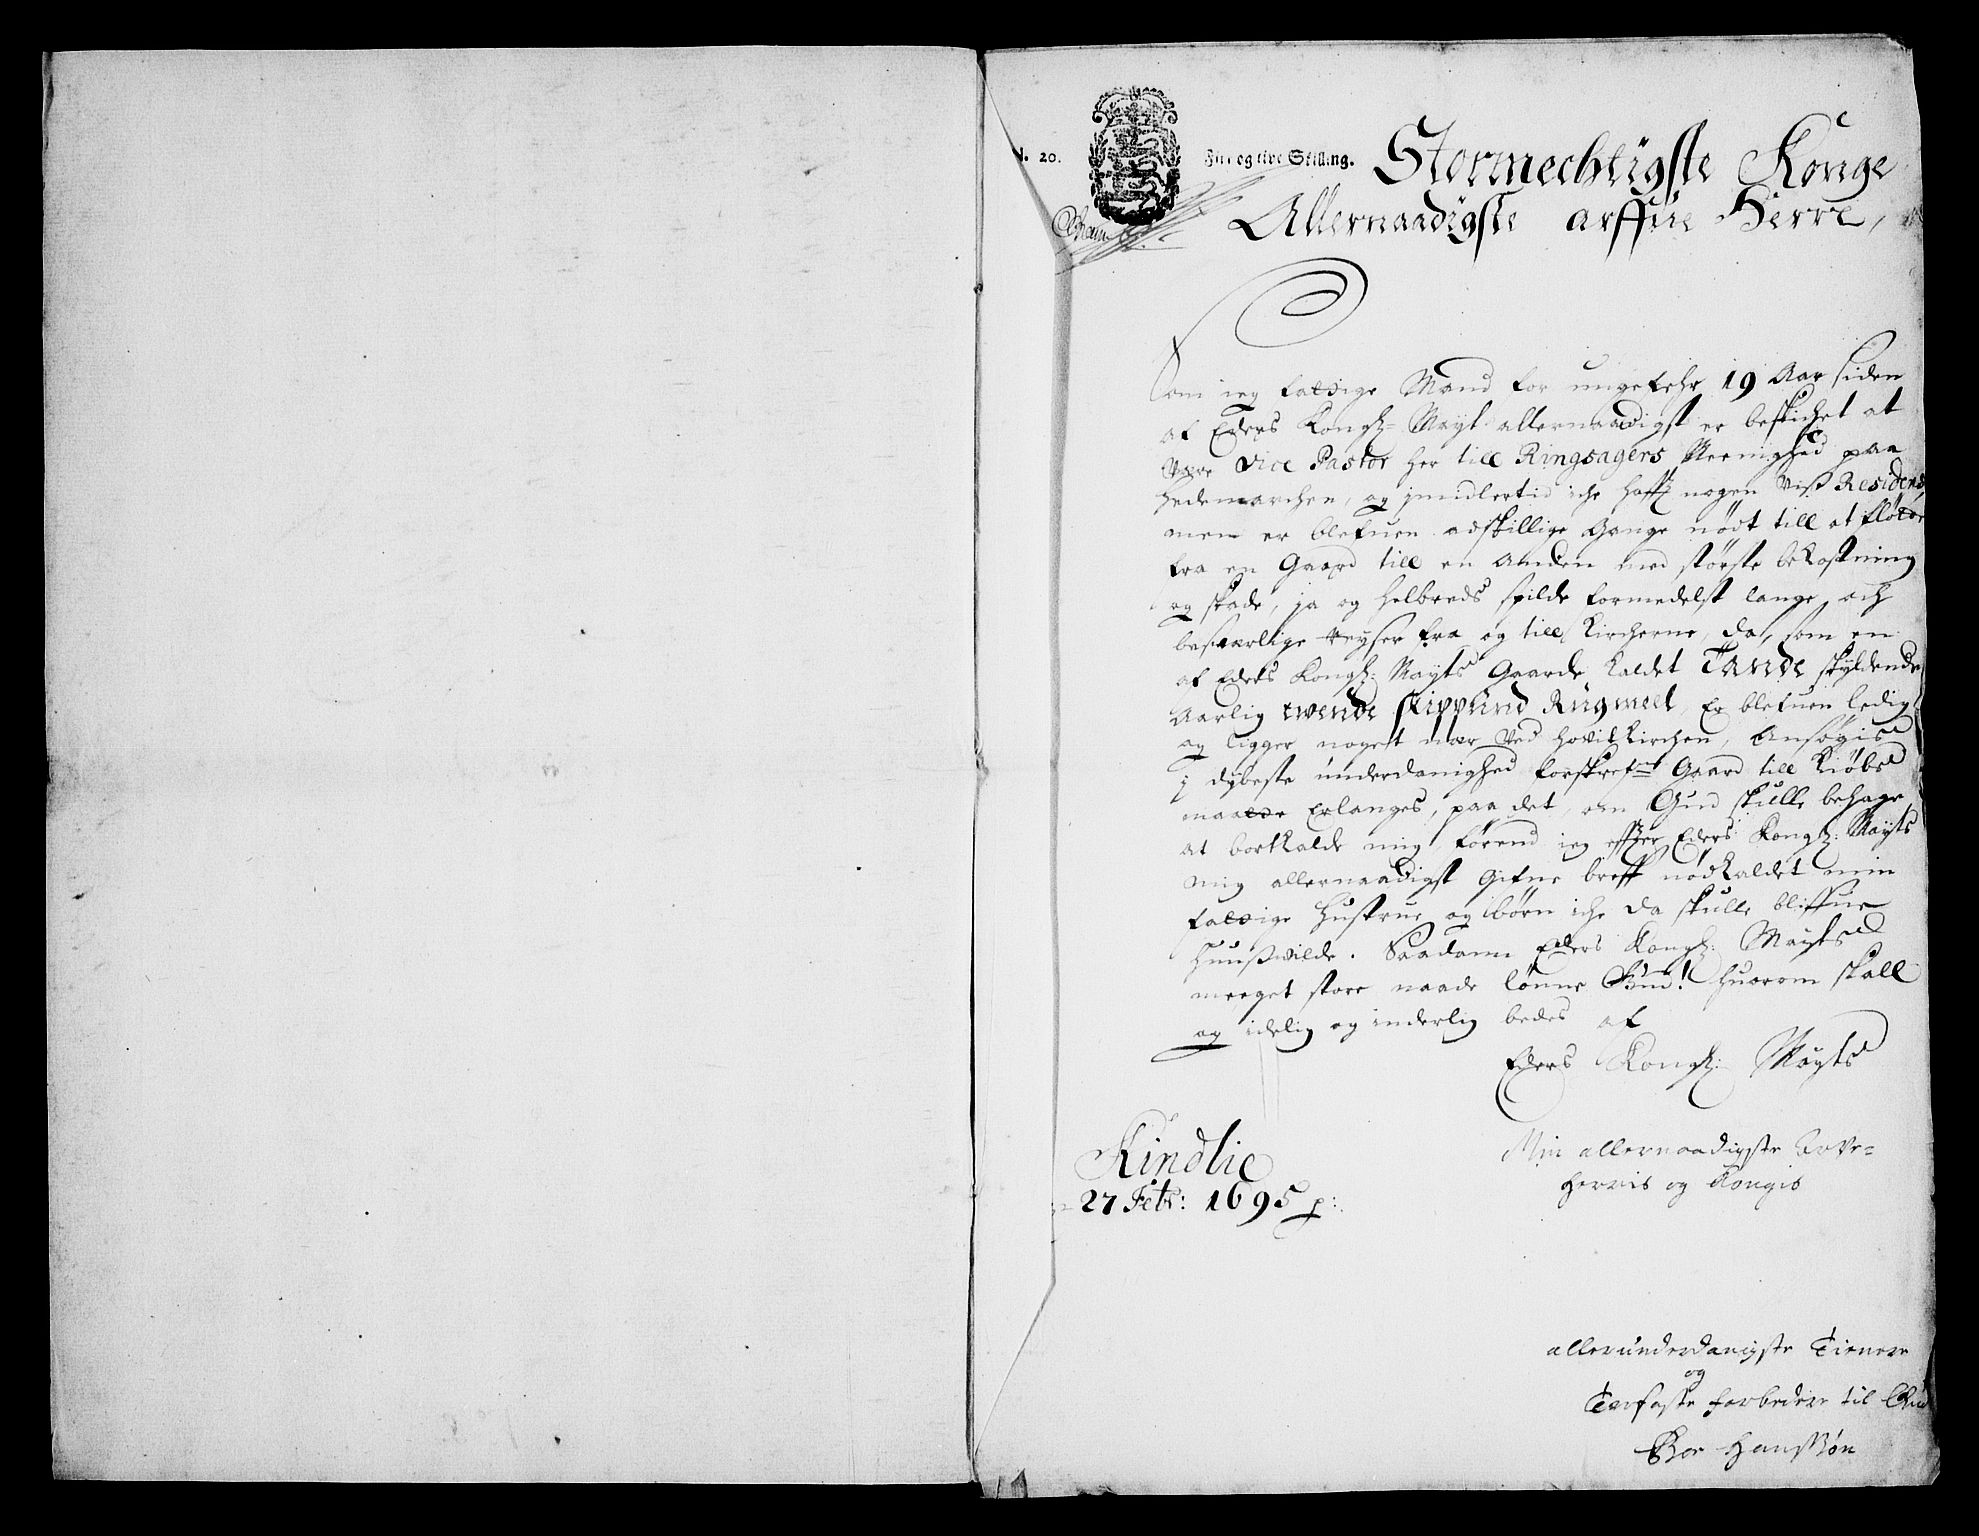 N. 20.
Fire og tive Skilling.
Stormechtigste Konge
Allernaadigste arffue Herre,
Som ieg fattige Mand for ungefehr 19 Aar siden
af Eders Kongl: Mayt allernaadigst er beskichet at
Være Vice Pastor her till Ringsagers Meenighed paa
Hedemarchen, og jmidlertid iche hafft nogen Viß Residens,
men er blefuen adskillige Gange nødt till at fløtte
fra en Gaard till en Anden med største bekostning
og skade, ja og helbreds spilde formedelst lange och
besuærlige Reyser fra og till Kircherne, da, som en
af Eders Kongl: Mayts Gaarde kaldet Tande skyldende
Aarlig twende skippund Rugmeel, Er blefuen ledig
og ligger noget nær Ved Hovitkirchen, Ansøgis
j dybeste underdanighed forskrefne Gaard till Kiøbs
maatte Erlanges, paa det, om Gud skulle behage
at bortkalde mig, førend ieg effter Eders Kongl: Mayts
mig allernaadigst gifne breff nødkaldet min
fattige Hustrue og børn iche da skulle bliffue
huußvilde. Saadann Eders Kongl: Mayts
meeget store naade lønne Gud! huorom skall
og idelig og inderlig bedes af
Eders Kongl: Mayts
Kindlie
27 Febr: 1695
Min allernaadigste Arve-
Herris og Kongis
allerunderdanigste Tienere
og
Troefaste forbedere til Gud
Thor Hanssøn